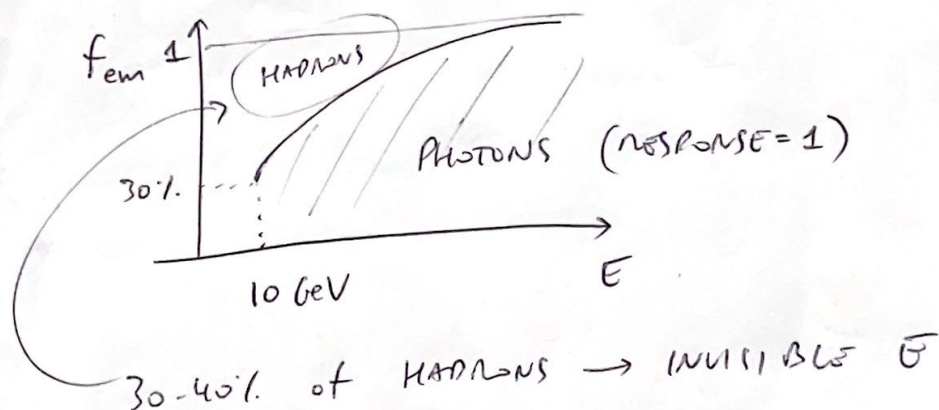 f_em 1
HADRONS
30%.
PHOTONS (RESPONSE = 1)
10 GeV
E
30-40% of HADRONS → INVISIBLE E